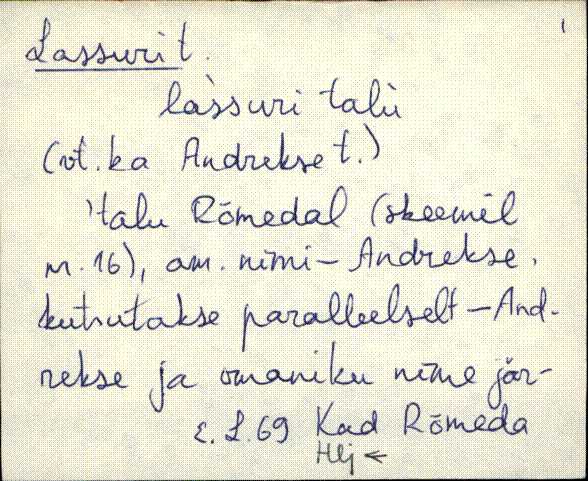 1
Lassuri t.
la`ssuri talù
(vt. ka Andrekse t.)
'talu Rõmedal (skeemil
nr. 16), am. nimi – Andrekse,
kutsutakse paralleelselt – And-
rekse ja omaniku nime jär-
E. L. 69 Kad Rõmeda
Hlj ←